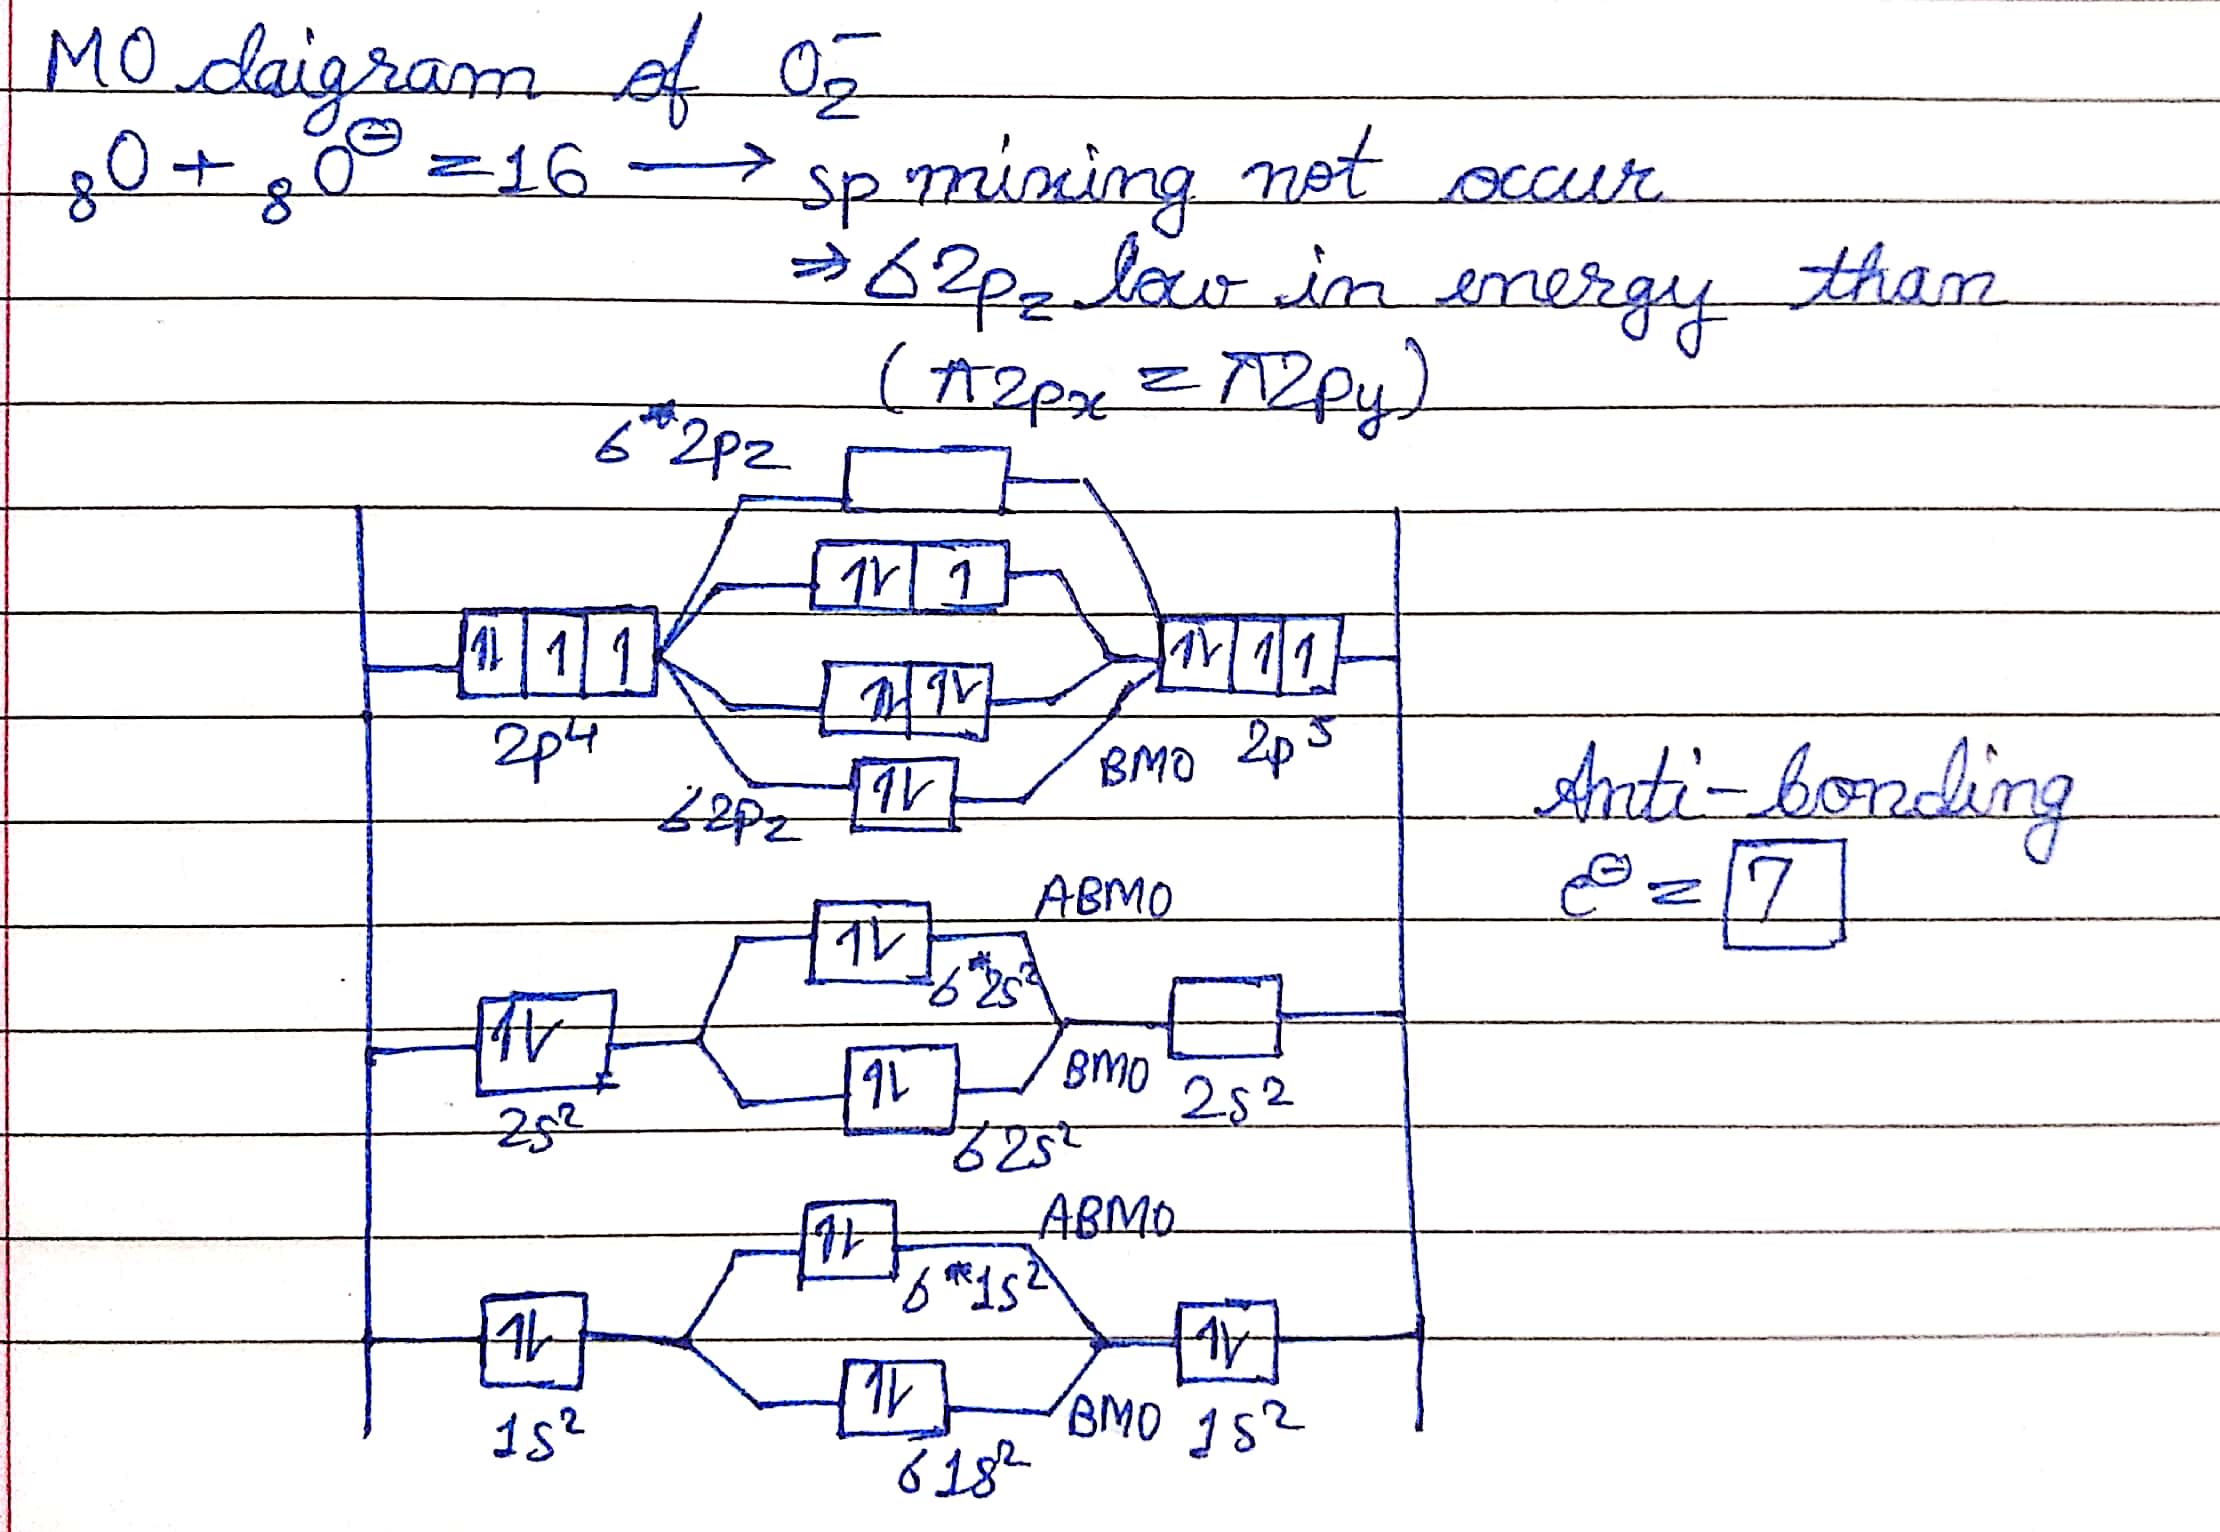 MO daigram of O₂⁻
₈O + ₈O⊖ = 16 → sp mixing not occur
⇒ σ2pz low in energy than
(π2px = π2py)
σ*2pz
↿⇂ 1
↿⇂ 1 1
↿⇂ 1 1
↿⇂ ↿⇂
2p⁴
BMO
2p⁵
σ2pz
↿⇂
Anti-bonding
e⊖ = 7
ABMO
↿⇂
σ*2s²
↿⇂
2s²
BMO
2s²
↿⇂
σ2s²
ABMO
↿⇂
σ*1s²
↿⇂
↿⇂
1s²
↿⇂
BMO
1s²
σ1s²